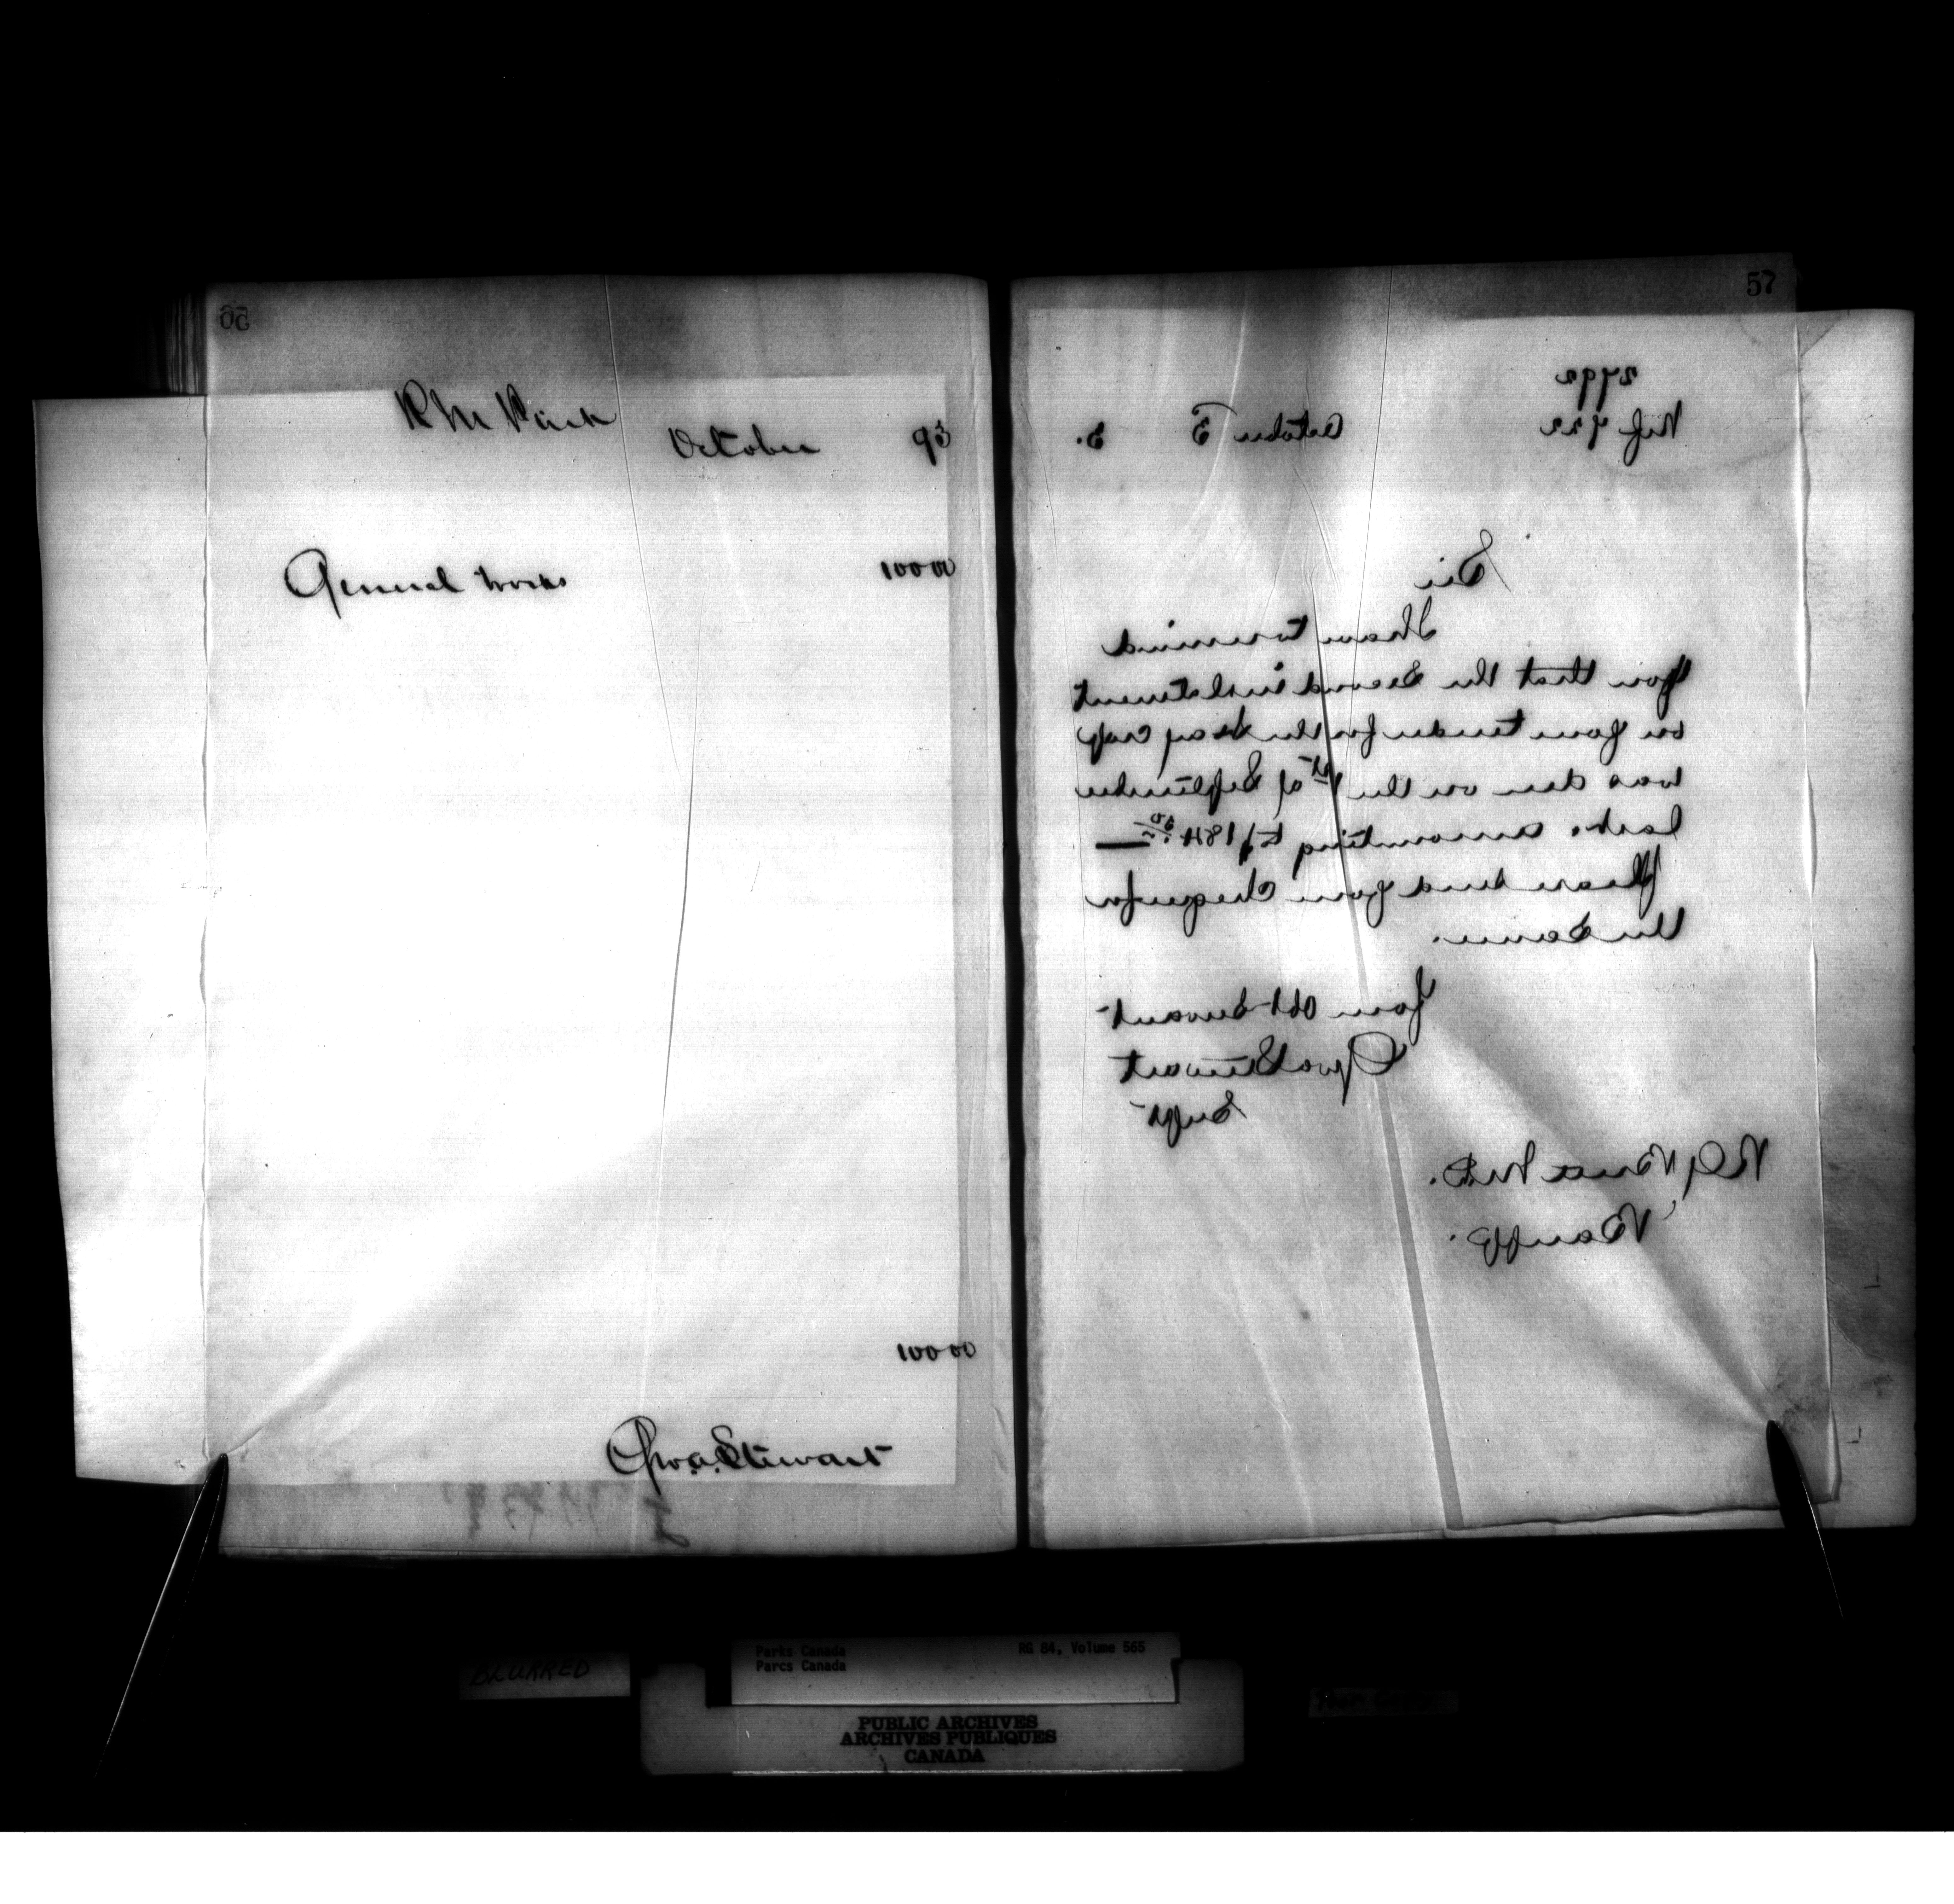 56
R M Park
October 93
General works 100 00
100 00
Geo. A. Stewart
57
2792
Ref 922 October 3 3.
Sir
I have to remind
you that the second instalment
on your tender for the Hay crop
was due on the 1st of September
last. amounting to $184.50
Please send your cheque for
the same.
Your Obt Servant
Geo A Stewart
Supt
R G Brett M.D.
Banff.
BLURRED
Parks Canada RG 84, Volume 565
Parcs Canada
PUBLIC ARCHIVES
ARCHIVES PUBLIQUES
CANADA